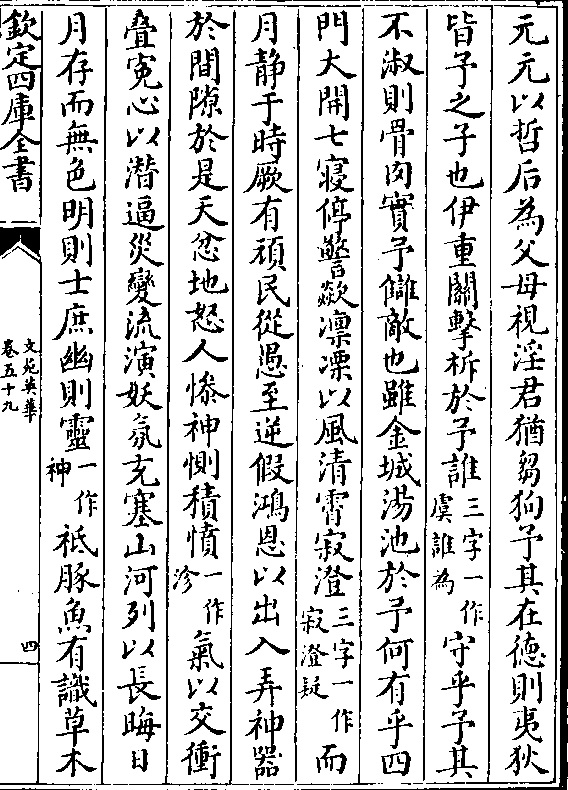 元元以哲后為父母視淫君猶芻狗予其在德則夷狄
皆予之子也伊重關擊柝於予誰三字一作虞誰為守乎予其
不淑則骨肉實予讎敵也雖金城湯池於予何有乎四
門大開七寢停警歘凛凓以風清霄寂澄三字一作寂澄疑而
月静于時厥有頑民從愚至逆假鴻恩以出入弄神器
於間隙於是天忿地怒人慘神惻積憤一作沴氣以交衝
疊寃心以潜逼災變流演妖氛充塞山河列以長晦日
月存而無色明則士庶幽則靈一作神祗豚魚有識草木
欽定四庫全書
文苑英華
卷五十九
四